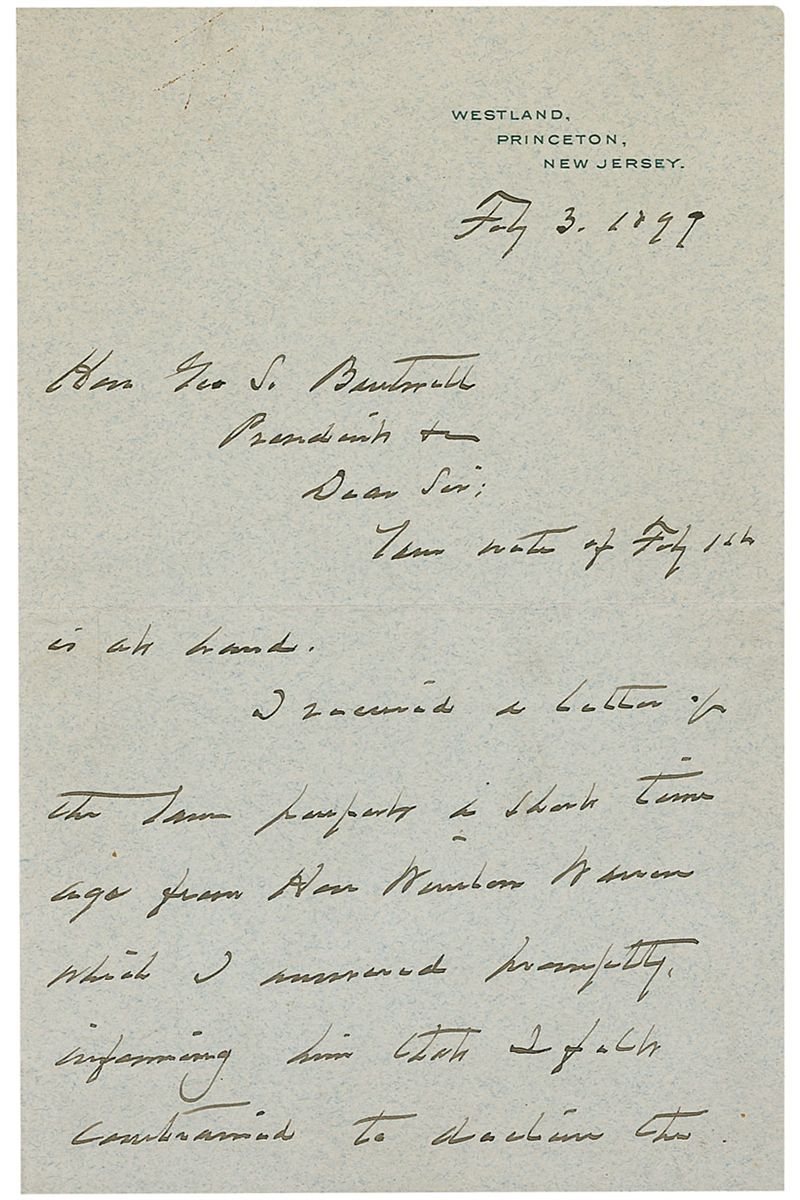 WESTLAND,
PRINCETON,
NEW JERSEY.
Feby 3. 1899
Hon Geo S. Boutwell
President &c
Dear Sir;
Your note of Feby 1st
is at hand.
I received a letter of
the same purport a short time
ago from Hon Winslow Warren
which I answered promptly,
informing him that I felt
constrained to decline the